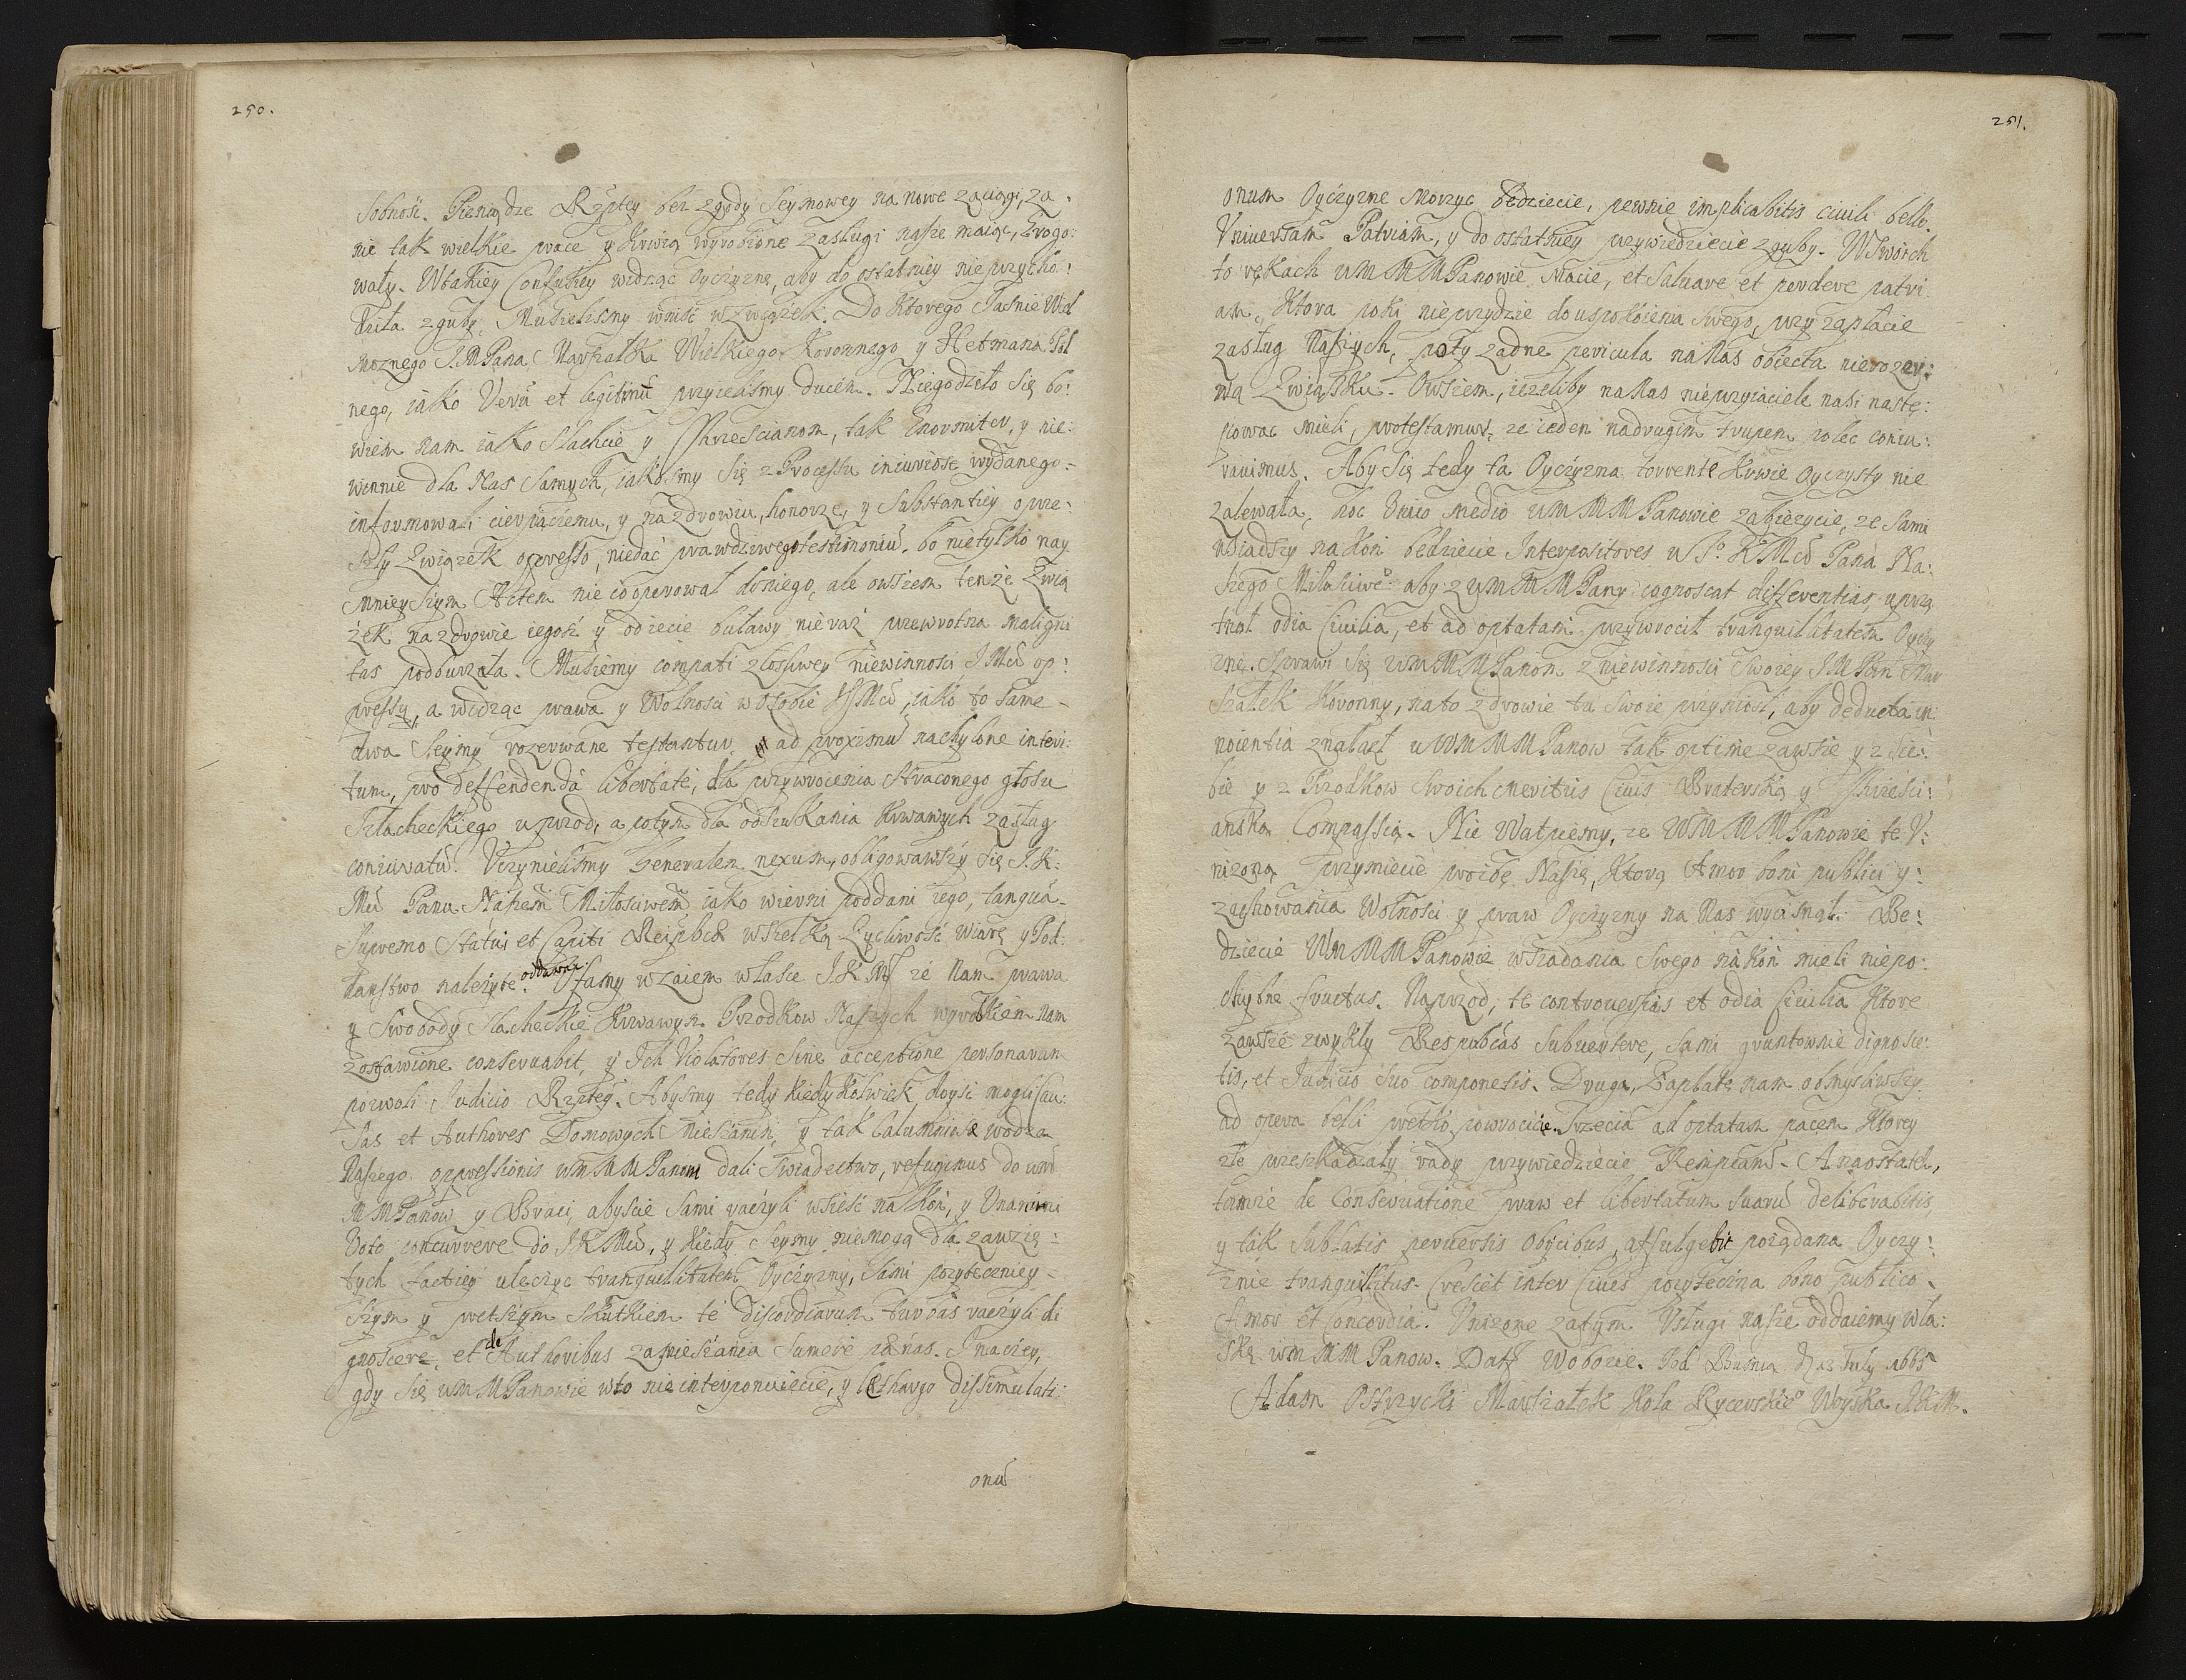 250.
sobność. Pieniądze Rzptey bez zgody Seymowey na nowe zaciągi, za:
nie tak wielkie prace y krwią wyrobione zasługi nasze maiąc, erogo:
wały. Wtakiey Confusiey widząc Oyczyznę, aby do ostatniey nieprzycho:
dziła zguby, Musieliśmy wniść w związek. Do ktorego Jaśnie Wiel
możnego J.M Pana Marszałka Wielkiego Koronnego y Hetmana Pol
nego, iako Verũ et legitimũ przyieliśmy ducem. Niegodziło się bo:
wiem nam iako Slachcie y Chrześcianom, tak Enormiter, y nie:
winnie dla Nas Samych, iakosmy się z Processu iniuriose wydanego
informowali cierpiącemu, y na zdrowiu, honorze, y Substantiey o prze:
szły Związek oppresso, niedać prawdziwego testimoniũ. bo nietylko nay
mnieyszym Actem nie cooperował doniego, ale owszem tenże Zwią
żek na zdrowie iegość y odięcie buławy nieraz przewrotna maligni
tas podburzała. Musiemy compati złośliwey niewinności JMci op:
pressą, a widząc prawa y Wolności w osobie JMci, iako to same
dwa Seymy rozerwane testantur, ad proximũ nachylone interi:
tum, pro deffendenda libertate, dla przywrocenia straconego głosu
Szlacheckiego uprzod, a potym dla odszukania krwawych zasług
coniuratũ. Uczynieliśmy Generalem nexum, obligowawszy się J.K.
Mci Panu Naszem̃ Miłościwem̃ iako wierni poddani iego, tanquã
Supremo Statui et Capiti Reipbcæ wszelką Zyczliwość wiarę y Pod:
daństwo należyte oddawać. Ufamy wzaiem własce J.K Mci że Nam prawa
y Swobody Slacheckie krwawym Przodkow Naszych wyrokiem nam
zostawione conservabit, y Ich Violatores sine acceptione personarum
pozwoli Judicio Rzptey. Abyśmy tedy kiedykolwiek doyść mogli cau:
sas et Authores Domowych mieszanin, y tak calumniosæ wodza
Naszego oppressionis WmMMPanom dali Swiadectwo, refugimus do Wm̃
MMPanow y Braci, abyście Sami raczyli wsieść na koń, y Unanimi
Voto concurrere do JKMci, y kiedy Seymy niemogą dla zawzię:
tych factiey uleczyc tranquillitatem Oyczyzny, Sami pożyteczniey
szym y pretszym skutkiem te discordiarum turbas raczyli di
gnoscere, et de Authoribus zamieszania sumere pænas. Inaczey,
gdy się WmMPanowie wto nie interponuiecie, y lethargo dissimulati:
onũ
251.
onum Oyczyznę morzyc będziecie, pewnie implicabitis civili bello
Universam Patriam, y do ostatniey przywiedziecie zguby. W Swoich
to rękach WMMMPanowie Macie, et Salvare et perdere patri
am, ktora poki nieprzydzie do uspokoienia swego, przy zapłacie
zasług Naszych, poty żadne pericula na Nas obiecta nierozer:
wą Związku. Owszem, ieżeliby na Nas nieprzyiaciele nasi nastę:
pować mieli, protestamur, ze ieden nadrugim trupem poledz coniu:
ravimus. Aby się tedy ta Oyczyzna torrente krwie Oyczysty nie
zalewała, hoc Unico medio WMMMPanowie zabieżycie, ze Sami
wsiadszy na koń będziecie Interpositores u Jº KMci Pana Na:
szego Miłościweº aby z WMMMPany cognoscat differentias, uprzą
tnął odia Civilia, et ad optatam przywrocił tranquillitatem Oyczy
znę. Sprawi się WMMMPanom z niewinności Swoiey JMPan Mar
szałek Koronny, nato zdrowie tu swoie przyniosł, aby deducta in:
nocentia znalazł u WMMMPanow tak optime zawsze y z sie:
bie y z Przodkow swoich meritus Civis Braterską y Chrześci:
anską Compassią. Nie Wątpiemy, ze WMMMPanowie te U:
niżoną przymiecie prozbę Naszę, ktorą Amor boni publici y:
zachowania Wolności y praw Oyczyzny na Nas wycisnął. Bę:
dziecie WMMMPanowie wsiadania swego na koń mieli niepo:
chybne fructus. Naprzod, te controversias et odia Civilia ktore
zawsze zwykły Respubcas Subvertere, sami gruntownie dignosce:
tis, et Judicio suo componetis. Druga, Zapłatę nam obmyśliwszy
ad opera belli prętko powrocicie. Trzecia ad optatam pacem ktorey
złe przeszkadzały rady przywiedziecie Rempcam̃. A naostatek,
tamże de Conservatione praw et libertatum suarũ deliberabitis,
y tak Sublatis perversis obicibus, affulgebit pożądana Oyczy:
znie tranquillitas. Crescet inter Cives pożyteczna bono publico
Amor et Concordia. Uniżone zatym Usługi nasze oddaiemy w ła:
skę WmMMPanow. Datt W obozie. Pod Buśnią d 13 July 1665
Adam Ostrzycki Marszałek Koła Rycerskieº Woyska J.K.M.